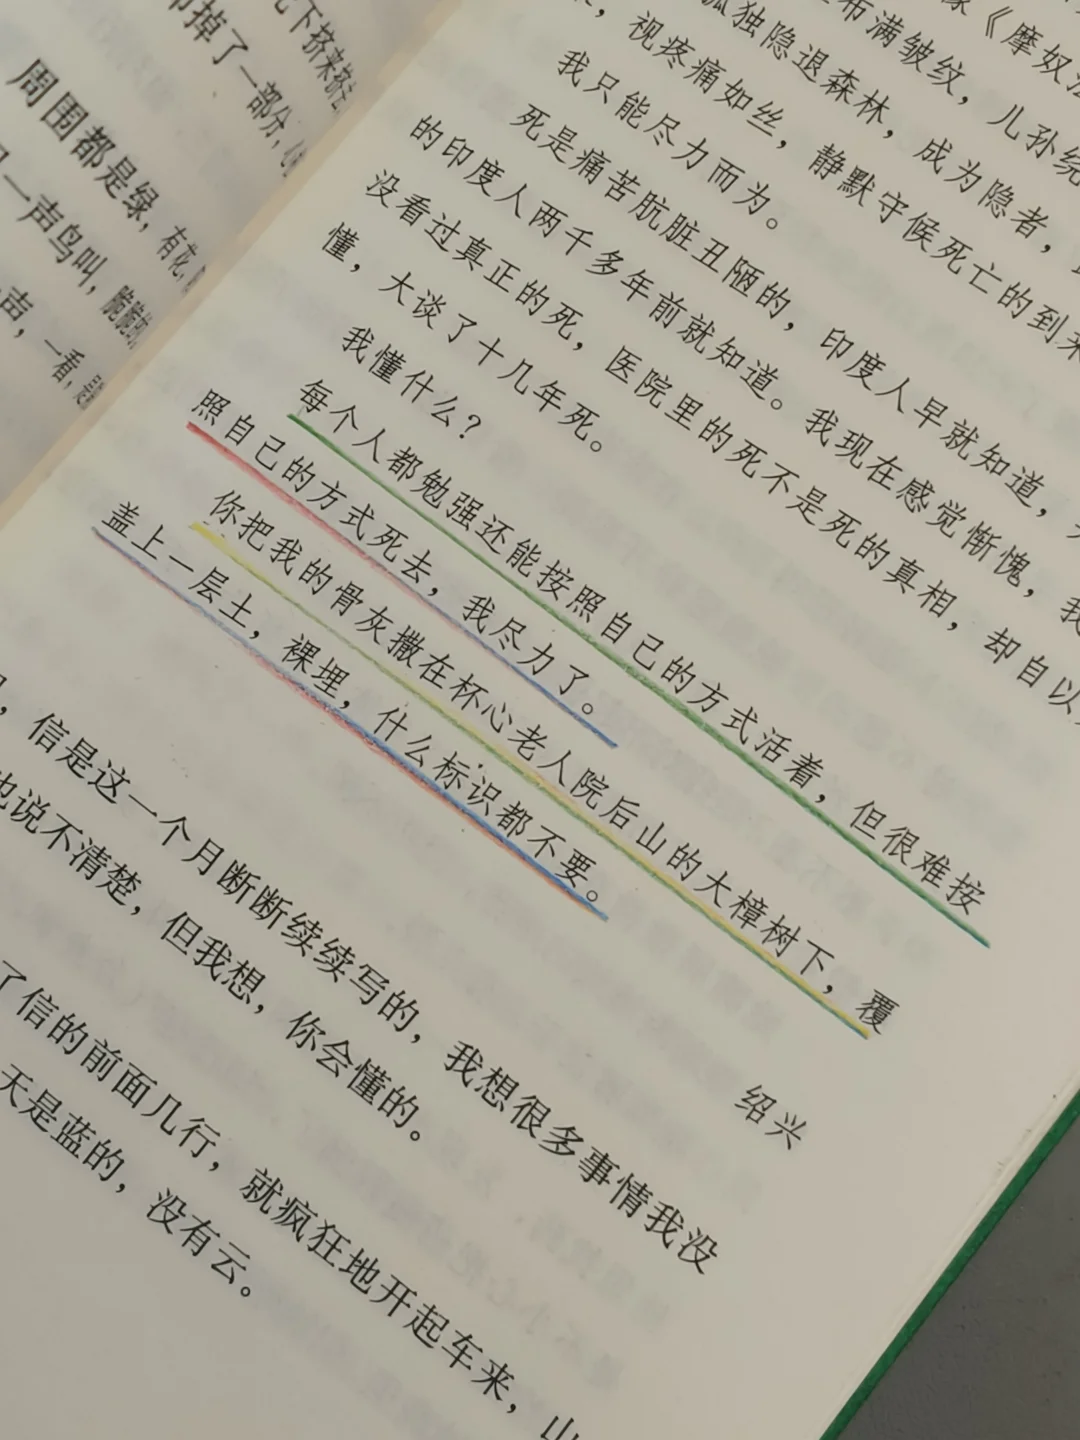 下挤来挤
掉了一部分，
周围都是绿，有花，
一声鸟叫，脆脆
声，一看，
《摩奴法
布满皱纹，儿孙绕
孤独隐退森林，成为隐者，
视疼痛如丝，静默守候死亡的到来
我只能尽力而为。
死是痛苦肮脏丑陋的，印度人早就知道，
的印度人两千多年前就知道。我现在感觉惭愧，我
没看过真正的死，医院里的死不是死的真相，却自以
懂，大谈了十几年死。
我懂什么？
每个人都勉强还能按照自己的方式活着，但很难按
照自己的方式死去，我尽力了。
你把我的骨灰撒在杯心老人院后山的大樟树下，覆
盖上一层土，裸埋，什么标识都不要。
绍兴
，信是这一个月断断续续写的，我想很多事情我没
也说不清楚，但我想，你会懂的。
了信的前面几行，就疯狂地开起车来，山
天是蓝的，没有云。